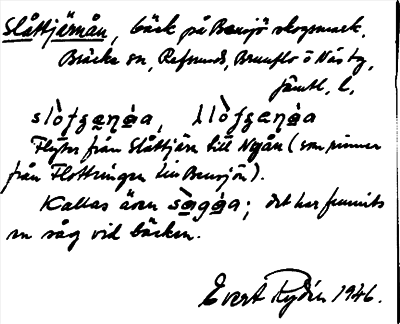 Slåttjärnån, bäck på Bensjö skogsmark,
Bräcke sn, Refsunds, Brunflo o Näs tg,
Jämtl. l,
slòtʒęŋa,
Flyter från Slåttjärn till Ngån (som rinner
från Flottringen till Bensjön).
Kallas även sàgǫa; det har funnits
en såg vid bäcken.
Evert Rydén 1946.